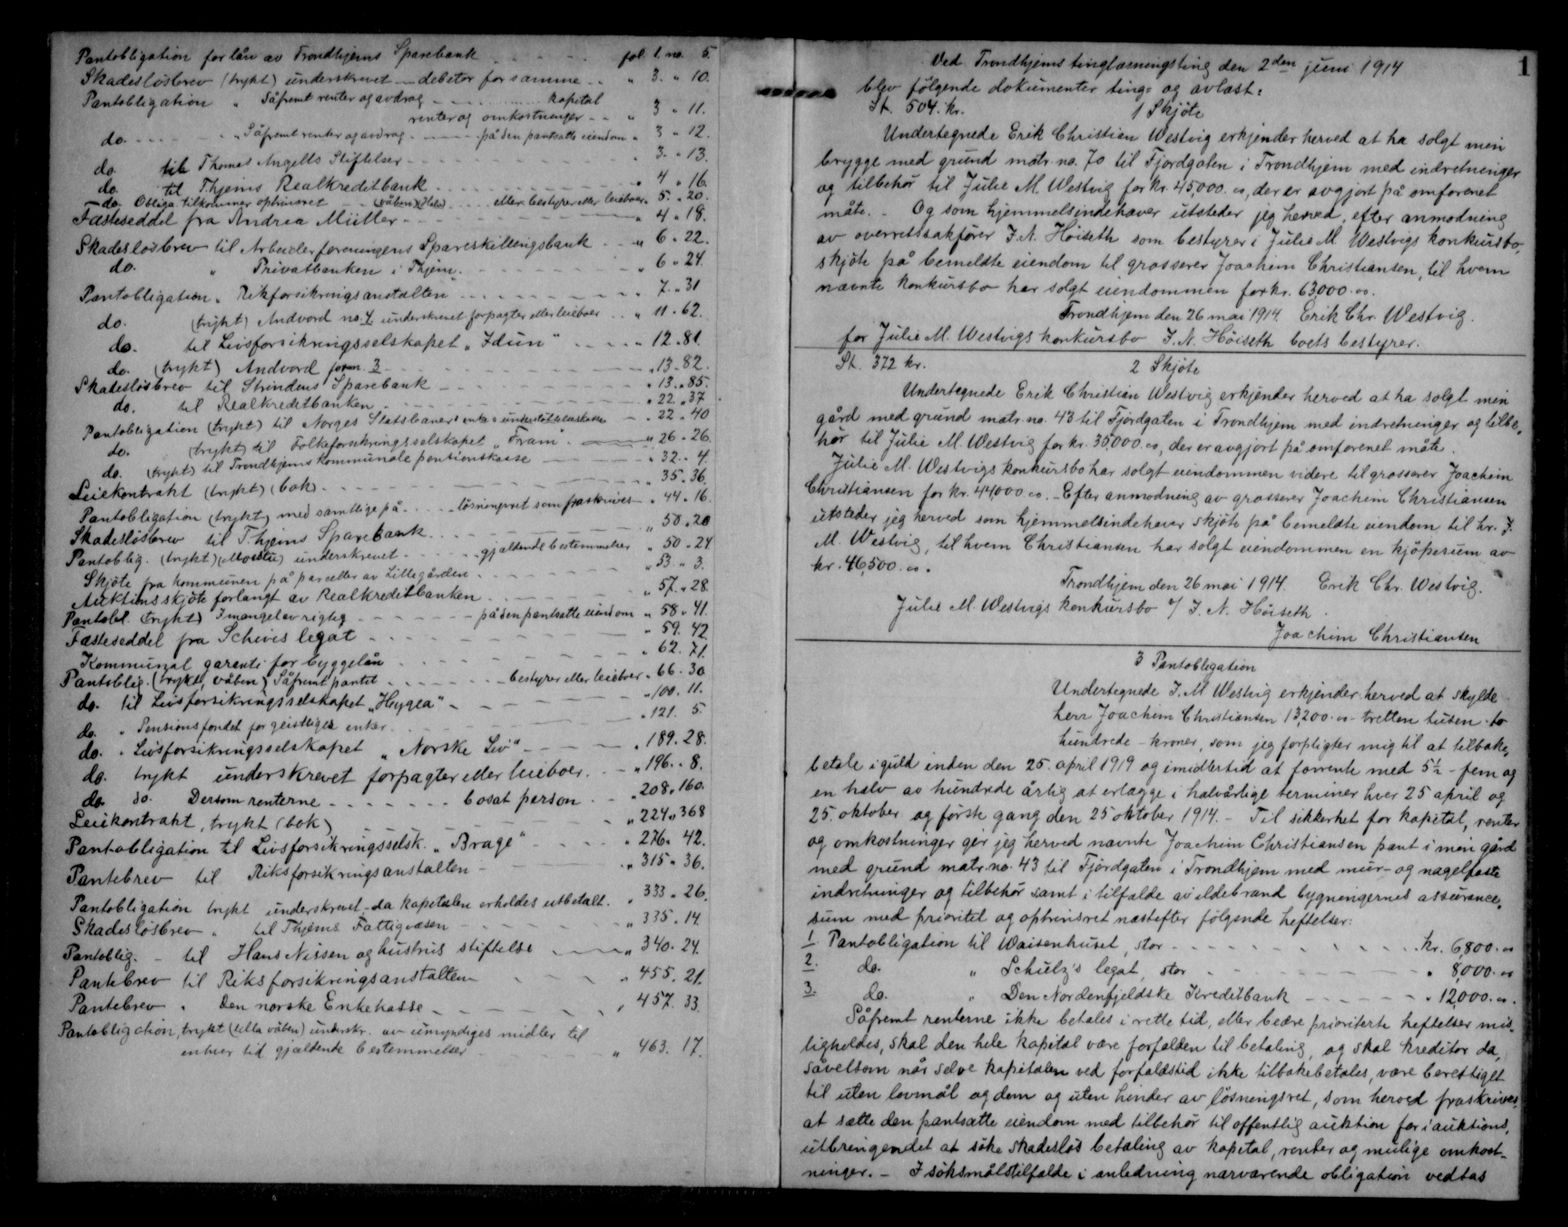 Pantobligation for lån av Trondhjems Sparebank - - - - - fol. 1. no. 5.
Skadesløsbrev (trykt) underskrevet - debitor for samme - - " 3. " 10.
Pantobligation " Såfremt renter og avdrag - - - - kapital
renter og omkostninger - - " 3 " 11.
do. - - - - " Såfremt renter og avdrag - - - - på den pantsatte eiendom " 3 " 12.
do. til Thomas Angells Stiftelser - - - - " 3. " 13.
do. til Thjems Realkreditbank - - - - " 4 " 16.
do. Obliga tilkommer ophinsret - - (våben) (hele) - - - eller bestyrer eller leieboer " 5. " 20.
Fæsteseddel fra Andrea Müller - - - - " 4 " 18.
Skadesløsbrev til Arbeiderforeningens Spareskillingsbank - - " 6 " 22.
do. " Privatbanken i Thjem. - - - - " 6 " 24.
Pantobligation " Rikforsikringsanstalten - - - - " 7 " 31
do. (trykt) Andvord no. 4 underskrevet forpagter eller leieboer - - " 11 " 62.
do. til Livsforsikringsselskapet "Idun" - - - - " 12 " 81.
do. (trykt) Andvord form. 3 - - - - " 13 " 82.
Skadesløsbrev til Strindens Sparebank - - - - " 13 " 85.
do. til Realkreditbanken - - - - " 22 " 37
Pantobligation (trykt) til Norges Statsbaners enke- understøttelseskasse - " 22 " 40
do. (trykt) til Folkeforsikringsselskapet "Fram" - - " 26 " 26.
do. (trykt) til Trondhjems kommunale pensionskasse - - " 32. " 4.
Leiekontrakt (trykt) (bok) - - - - " 35 " 36.
Pantobligation (trykt) med samtlige på - - - løsningsret som fraskrives - " 44 " 16.
Skadesløsbrev til Thjems Sparebank - - - - " 50 " 20
Pantoblig. (trykt) underskrevet - - - - gjældende bestemmelser " 50 " 24
Skjøte fra kommunen på parceller av Lillegården - - - - " 53 " 3.
Auktionsskjøte forlangt av Realkreditbanken - - - - " 57. " 28.
Pantobl. (trykt) I mangel av rigtig - - - - på den pantsatte eiendom " 58 " 41.
Fæsteseddel fra Schives legat - - - - " 59. 42
Kommunal garanti for byggelån - - - - " 62. 71.
Pantoblig. (trykt, våben) Såfremt pantet - - - - bestyrer eller leieboer " 66. 30
do. til Livsforsikringsselskapet "Hygea" - - - - " 100. 11.
do. " Pensionsfondet for geistliges enker - - - - " 121. 5
do. " Livsforsikringsselskapet "Norske Liv" - - - - " 189. 28.
do. trykt underskrevet forpagter eller leieboer. - - " 196. " 8.
do. do. Dersom renterne - - - - bosat person - - " 208. 160.
Leiekontrakt, trykt (bok) - - - - " 224 " 368
Pantobligation til Livsforsikringsselsk. "Brage" - - - - " 276. 42.
Pantebrev til Riksforsikringsanstalten - - - - " 315 " 36.
Pantobligation trykt underskrevet - da kapitalen erholdes utbetalt. " 333 " 26.
Skadesløsbrev " til Thjems Fattigvæsen - - - - " 335. 14.
Pantoblig. - til Hans Nissen og hustrus stiftelse - - - " 340. 24.
Pantebrev til Riksforsikringsanstalten - - - - " 455. 21.
Pantebrev " Den norske Enkekasse - - - - " 457. 33.
Pantobligation, trykt (lille våben) underskr. av umyndiges midler til
enhver tid gjældende bestemmelser - - - - " 463. 17.
1
Ved Trondhjems tinglæsningsting den 2den juni 1914
blev følgende dokumenter tingl. og avlæst:
St. 504. kr. 1 Skjøte
Undertegnede Erik Christian Westvig erkjender herved at ha solgt min
brygge med grund matr. no. 70 til Fjordgaten i Trondhjem med indretninger
og tilbehør til Julie M. Westvig for kr. 45000.00, der er avgjort på omforenet
måte. - Og som hjemmelsindehaver utsteder jeg herved, efter anmodning
av overretssakfører J. N. Høiseth som bestyrer i Julie M. Westvigs konkursbo,
skjøte på bemeldte eiendom til grosserer Joachim Christiansen, til hvem
nævnte konkursbo har solgt eiendommen for kr. 63000.00.
Trondhjem den 26 mai 1914 Erik Chr. Westvig.
for Julie M. Westvigs konkursbo J. N. Høiseth boets bestyrer.
St. 372 kr. 2 Skjøte
Undertegnede Erik Christian Westvig erkjender herved at ha solgt min
gård med grund matr. no. 43 til Fjordgaten i Trondhjem med indretninger og tilbe-
hør til Julie M. Westvig for kr. 35000.00, der er avgjort på omforenet måte.
Julie M. Westvigs konkursbo har solgt eiendommen videre til grosserer Joachim
Christiansen for kr. 44000.00. - Efter anmodning av grosserer Joachim Christiansen
utsteder jeg herved som hjemmelsindehaver skjøte på bemeldte eiendom til hr. J.
M. Westvig, til hvem Christiansen har solgt eiendommen en kjøpesum av
kr. 46,500.00.
Trondhjem den 26 mai 1914. Erik Chr. Westvig.
Julie M. Westvigs konkursbo v/ J. N. Høiseth
Joachim Christiansen
3 Pantobligation
Undertegnede J. M Westvig erkjender herved at skylde
herr Joachim Christiansen 13,200.00 - tretten tusen to
hundrede - kroner, som jeg forpligter mig til at tilbake-
betale i guld inden den 25. april 1919 og imidlertid at forrente med 5½ - fem og
en halv av hundrede årlig at erlægge i halvårlige terminer hver 25 april og
25. oktober og første gang den 25 oktober 1914. - Til sikkerhet for kapital, renter
og omkostninger gir jeg herved nævnte Joachim Christiansen pant i min gård
med grund matr. no. 43 til Fjordgaten i Trondhjem med mur- og nagelfaste
indretninger og tilbehør samt i tilfælde av ildebrand bygningernes assurance-
sum med prioritet og ophinsret næstefter følgende heftelser:
1. Pantobligation til Waisenhuset, stor - - - - kr. 6,800.00
2. do. " Schulz's legat, stor - - - - " 8,000.00
3. do. " Den Nordenfjeldske Kreditbank - - - - " 12,000.00.
Såfremt renterne ikke betales i rette tid, eller bedre prioriterte heftelser mis-
ligholdes, skal den hele kapital være forfalden til betaling, og skal kreditor da,
såvelsom når selve kapitalen ved forfaldstid ikke tilbakebetales, være berettiget
til uten lovmål og dom og uten hinder av løsningsret, som herved fraskrives,
at sætte den pantsatte eiendom med tilbehør til offentlig auktion for i auktions-
utbringendet at søke skadesløs betaling av kapital, renter og mulige omkost-
ninger. - I søksmålstilfælde i anledning nærværende obligation vedtas